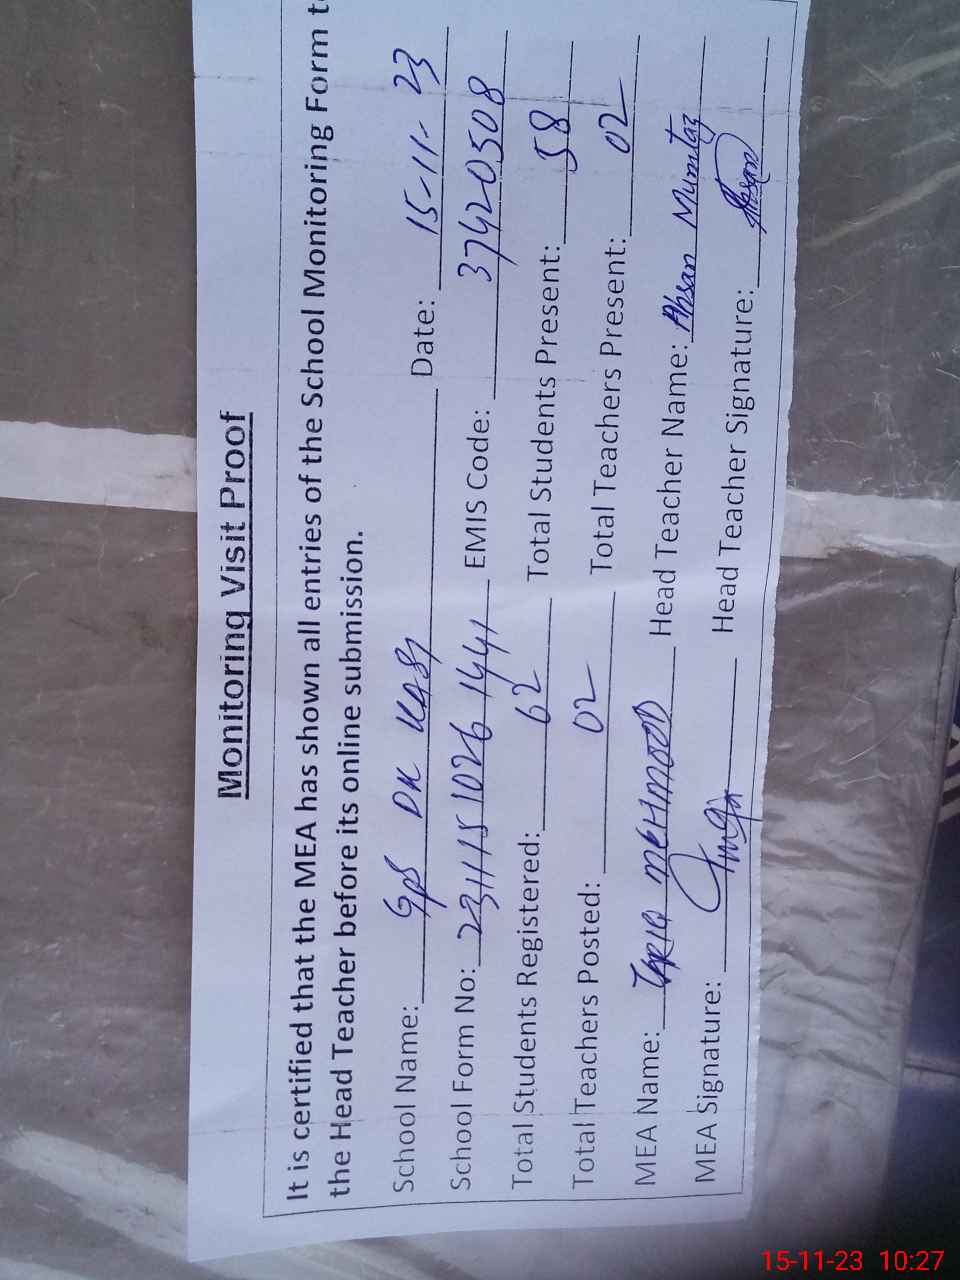 Monitoring Visit Proof
It is certified that the MEA has shown all entries of the School Monitoring Form t
the Head Teacher before its online submission.
School Name: GPS DK Date: 15-11-23
School Form No: 231115 1026 1441 EMIS Code: 37420508
Total Students Registered: 62 Total Students Present: 58
Total Teachers Posted: 02 Total Teachers Present: 02
MEA Name: TARIQ MEHMOOD Head Teacher Name: Ahsan Mumtaz
MEA Signature: Head Teacher Signature: Ahsan
15-11-23 10:27